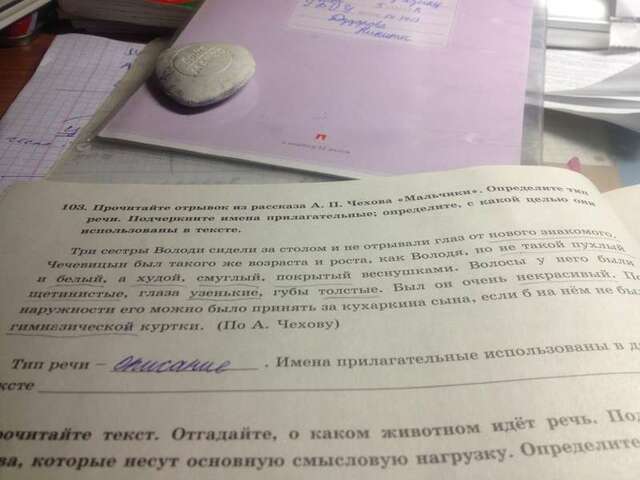 103. Прочитайте отрывок из рассказа А. П. Чехова «Мальчики». Определите тип
речи. Подчеркните имена прилагательные; определите, с какой целью они
использованы в тексте.
Три сестры Володи сидели за столом и не отрывали глаз от нового знакомого.
Чечевицын был такого же возраста и роста, как Володя, но не такой пухлый
и белый, а худой, смуглый, покрытый веснушками. Волосы у него были
щетинистые, глаза узенькие, губы толстые. Был он очень некрасивый.
наружности его можно было принять за кухаркина сына, если б на нём не
гимназической куртки. (По А. Чехову)
Тип речи – описание. Имена прилагательные использованы в
тексте
прочитайте текст. Отгадайте, о каком животном идёт речь.
которые несут основную смысловую нагрузку. Определите